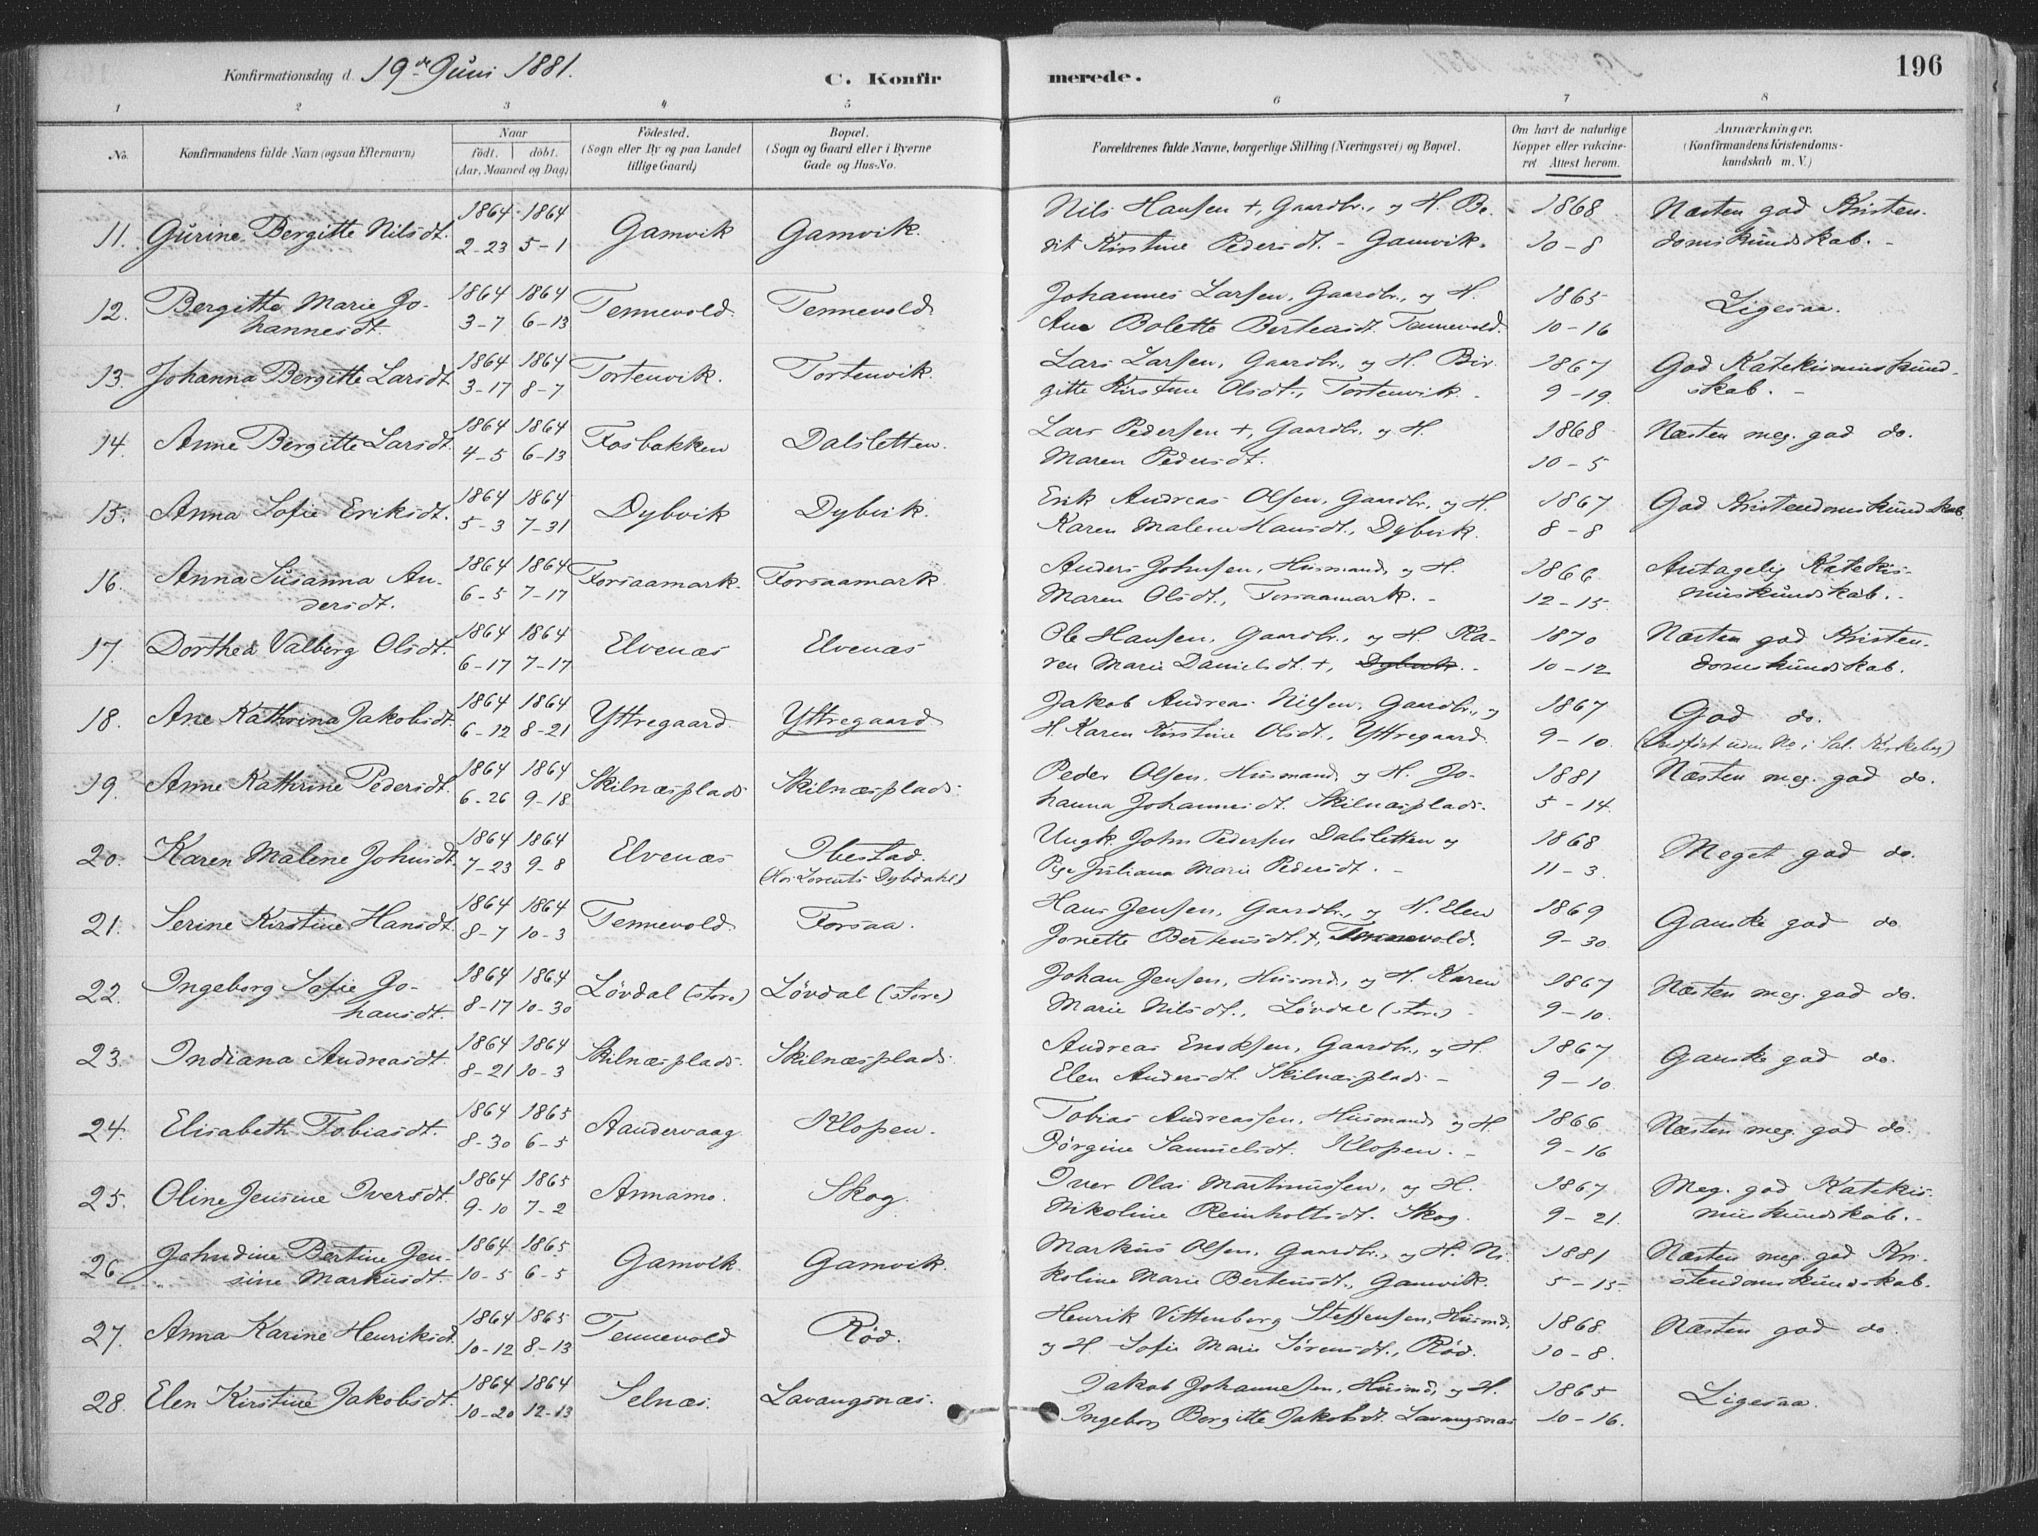 Konfirmationsdag d. 19de Juni 1881.
C. Konfirmerede.
196
1 2 3 4 5 6 7 8
No.
Konfirmandens fulde Navn (ogsaa Efternavn)
Naar
födt. döbt.
(Aar, Maaned og Dag)
Födested.
(Sogn eller By og paa Landet
tillige Gaard)
Bopæl.
(Sogn og Gaard eller i Byerne
Gade og Hus-No.
Forældrenes fulde Navne, borgerlige Stilling (Næringsvei) og Bopæl.
Om havt de naturlige
Kopper eller vakcine-
ret Attest herom.
Anmærkninger.
(Konfirmandens Kristendoms-
kundskab m. V.)
11. Gurine Bergitte Nilsdt. 1864 2-23 1864 5-1 Gamvik Gamvik.
Nils Hansen +, Gaardbr., og H. Be-
rit Kirstine Pedersdt. - Gamvik.
1868 10-8
Næsten god Kristen-
domskundskab. -
12. Bergitte Marie Jo-
hannesdt. 1864 3-7 1864 6-13 Tennevold Tennevold
Johannes Larsen, Gaardbr., og H.
Ane Bolette Bertensdt. Tennevold.
1865 10-16
Ligesaa.
13. Johanna Bergitte Larsdt 1864 3-17 1864 8-7 Tortenvik. Tortenvik.
Lars Larsen, Gaardbr., og H. Bir-
gitte Kirstine Olsdt., Tortenvik.
1867 9-19
God Katekismuskund-
skab. -
14. Anne Bergitte Larsdt. 1864 4-5 1864 6-13 Fosbakken Dalsletten.
Lars Pedersen +, Gaardbr. og H.
Maren Pedersdt.
1868 10-5
Næsten meg. god do.
15. Anna Sofie Eriksdt. 1864 5-3 1864 7-31 Dybvik Dybvik.
Erik Andreas Olsen, Gaardbr., og H.
Karen Malene Hansdt., Dybvik.
1867 8-8
God Kristendomskundskab
16. Anna Susanna An-
dersdt. 1864 6-5 1864 7-17 Forsaamark. Forsaamark.
Anders Johnsen, Husmand, og H.
Maren Olsdt., Forsaamark. -
1866 12-15
Antagelig Katekis-
muskundskab. -
17. Dorthea Valborg Olsdt. 1864 6-17 1864 7-17 Elvenæs Elvenæs
Ole Hansen, Gaardbr., og H. Ka-
ren Marie Danielsdt. +, Dybvik. -
1870 10-12
Næsten god Kristen-
domskundskab.
18. Ane Kathrina Jakobsdt. 1864 6-12 1864 8-21 Yttregaard. Yttregaard
Jakob Andreas Nilsen, Gaardbr., og
H. Karen Kirstine Olsdt., Yttregaard.
1867 9-10.
God do.
(Indført uden No i Sal. Kirkebog)
19. Anne Kathrine Pedersdt. 1864 6-26 1864 9-18 Skilnæsplads Skilnæsplads.
Peder Olsen, Husmand, og H. Jo-
hanna Johannesdt. Skilnæsplads.
1881 5-14.
Næsten meg. god do.
20. Karen Malene Johnsdt. 1864 7-23 1864 9-8 Elvenæs Ibestad.
(Hos Lorents Dybdahl)
Ungk. John Pedersen Dalsletten og
Pige Juliana Marie Pedersdt. -
1868 11-3.
Meget god do.
21. Serine Kirstine Hansdt. 1864 8-7 1864 10-3 Tennevold Forsaa.
Hans Jensen, Gaardbr., og H. Elen
Jonette Bertensdt. +, Tennevold.
1869 9-30.
Ganske god do
22. Ingeborg Sofie Jo-
hansdt. 1864 8-17 1864 10-30 Lövdal (store) Lövdal (store)
Johan Jensen, Husmd., og H. Karen
Marie Nilsdt., Lövdal (store) -
1867 9-10.
Næsten meg. god do.
23. Indiana Andreasdt. 1864 8-21 1864 10-3 Skilnæsplads. Skilnæsplads.
Andreas Enoksen, Gaardbr., og H.
Elen Andersdt. Skilnæsplads -
1867 9-10.
Ganske god do.
24. Elisabeth Tobiasdt. 1864 8-30 1865 6-5 Aandervaag Klopen.
Tobias Andreassen, Husmand, og H
Jörgine Samuelsdt. Klopen. -
1866 9-16
Næsten meg. god do.
25. Oline Jensine Iversdt. 1864 9-10 1865 7-2 Annamo. Skog.
Iver Olai Martinussen, og H.
Nikoline Reinholtsdt. Skog.
1867 9-21.
Meg. god Katekis-
muskundskab. -
26. Johndine Bertine Jen-
sine Markusdt. 1864 10-5 1865 6-5 Gamvik. Gamvik.
Markus Olsen, Gaardbr., og H. Ni-
koline Marie Bertensdt., Gamvik.
1881 5-15-
Næsten meg. god Kri-
stendomskundskab.
27. Anna Karine Henriksdt. 1864 10-12 1865 8-13 Tennevold Röd.
Henrik Vittenborg Steffensen, Husmd,
og H. Sofie Marie Sörensdt., Röd.
1868 10-8.
Næsten god do.
28. Elen Kirstine Jakobsdt. 1864 10-20 1864 12-13 Selnæs. Lavangsnæs.
Jakob Johannesen, Husmd, og H.
Ingeborg Bergitte Jakobsdt. Lavangsnæs
1865 10-16.
Ligesaa.